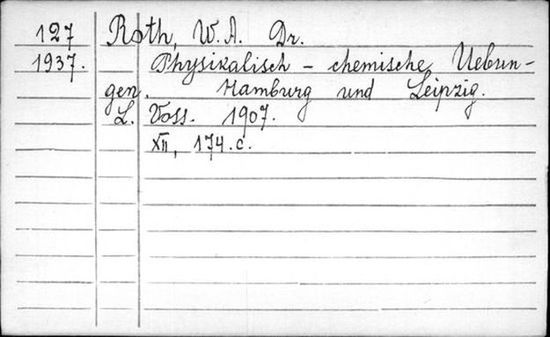 127 Roth, W. A. Dr.
1937. Physikalisch - chemische Uebun-
gen. Hamburg und Leipzig.
L. Voss. 1907.
XII, 174. c.